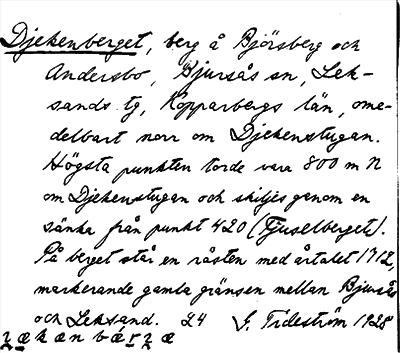 Djekenberget, berg å Björsberg och
Andersbo, Bjursås sn, Lek-
sands tg, Kopparbergs län, ome-
delbart norr om Djekenstugan.
Högsta punkten torde vara 800 m N
om Djekenstugan och skiljes genom en
sänka från punkt 420 (Tjuselberget).
På berget står en råsten med årtalet 1712,
markerande gamla gränsen mellan Bjursås
och Leksand. 24 G. Tideström 1928